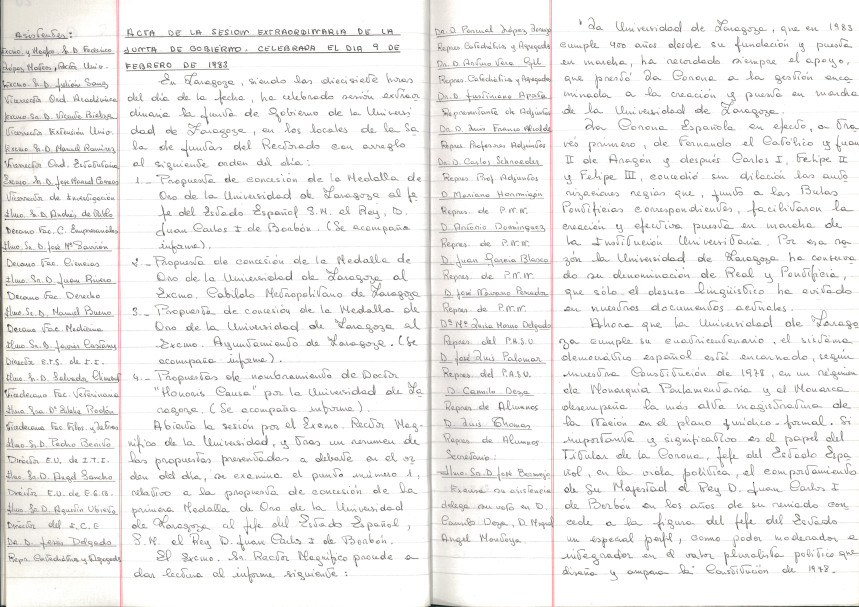 Asistentes:
Excmo. y Magfco. S. D. Federico
López Mateos, Rector Univ.
Excmo. Sr. D. Julián Sanz
Vicerrector Ord. Académica
Excmo. Sr. D. Vicente Bielza
Vicerrector Extensión Univ.
Excmo. Sr. D. Manuel Ramírez
Vicerrector Ord. Estatutaria
Excmo. Sr. D. José Manuel Correas
Vicerrector de Investigación
Ilmo. Sr. D. Andrés de Pablo
Decano Fac. C. Empresariales
Ilmo. Sr. D. José Mª Savirón
Decano Fac. Ciencias
Ilmo. Sr. D. Juan Rivero
Decano Fac. Derecho
Ilmo. Sr. D. Manuel Bueno
Decano Fac. Medicina
Ilmo. Sr. D. Javier
Director E.T.S. de I.I.
Ilmo. Sr. D. Salvador Climent
Vicedecano Fac. Veterinaria
Ilma. Sra. Dª
Vicedecana Fac. Filos. y Letras
Ilmo. Sr. D. Pedro Benito
Director E.U. de I.T.I.
Ilmo. Sr. D. Angel Sancho
Director E.U. de E.G.B.
Ilmo. Sr. D. Agustín Ubieto
Director del I.C.E
Dr. D. Jesús Delgado
Repre Catedráticos y Agregados
ACTA DE LA SESION EXTRAORDINARIA DE LA
JUNTA DE GOBIERNO, CELEBRADA EL DIA 9 DE
FEBRERO DE 1983
En Zaragoza, siendo las diecisiete horas
del día de la fecha, ha celebrado sesión extraor
dinaria la Junta de Gobierno de la Universi
dad de Zaragoza, en los locales de la Sa
la de Juntas del Rectorado con arreglo
al siguiente orden del día:
1.- Propuesta de concesión de la Medalla de
Oro de la Universidad de Zaragoza al Je
fe del Estado Español S.M. el Rey, D.
Juan Carlos I de Borbón. (Se acompaña
informe).
2.- Propuesta de concesión de la Medalla de
Oro de la Universidad de Zaragoza al
Excmo. Cabildo Metropolitano de Zaragoza
3.- Propuesta de concesión de la Medalla de
Oro de la Universidad de Zaragoza al
Excmo. Ayuntamiento de Zaragoza. (Se
acompaña informe).
4.- Propuestas de nombramiento de Doctor
"Honoris Causa" por la Universidad de Za
ragoza. (Se acompaña informe).
Abierta la sesión por el Excmo. Rector Mag-
nífico de la Universidad, y tras un resumen de
las propuestas presentadas a debate en el or
den del día, se examina el punto número 1,
relativo a la propuesta de concesión de la
primera Medalla de Oro de la Universidad
de Zaragoza al Jefe del Estado Español,
S.M. el Rey D. Juan Carlos I de Borbón.
El Excmo. Sr. Rector Magnífico procede a
dar lectura al informe siguiente:
Dr. D. Pascual López
Repres. Catedráticos y Agregados
Dr. D. Arturo Vera Gil
Repres. Catedráticos y Agregados
Dr. D. Justiniano Aporta
Representante de Adjuntos
Dr. D. Luis Franco
Repres. Profesores Adjuntos
Dr. D. Carlos Schroeder
Repres. Prof. Adjuntos
D. Mariano Hormigón
Repres. de P.N.N.
D. Antonio Domínguez
Repres. de P.N.N.
D. Juan García Blasco
Repres. de P.N.N.
D. José Navarro
Repres. de P.N.N.
Dª Mª Luisa Horno Delgado
Repres. del P.A.S.U.
D. José Luis Palomar
Repres. del P.A.S.U.
D. Camilo Deza
Repres. de Alumnos
D. Luis Thomas
Repres. de Alumnos
Secretario:
Ilmo. Sr. D. José Bermejo
Excusa su asistencia
delega su voto en D.
Camilo Deza, D. Miguel
Angel Montoya.
"La Universidad de Zaragoza, que en 1983
cumple 400 años desde su fundación y puesta
en marcha, ha recordado siempre el apoyo,
que prestó la Corona a la gestión enca
minada a la creación y puesta en marcha
de la Universidad de Zaragoza.
La Corona Española en efecto, a tra
vés primero, de Fernando el Católico y Juan
II de Aragón y después Carlos I, Felipe II
y Felipe III, concedió sin dilación las auto
rizaciones regias que, junto a las Bulas
Pontificias correspondientes, facilitaron la
creación y efectiva puesta en marcha de
la Institución Universitaria. Por esa ra
zón la Universidad de Zaragoza ha conserva
do su denominación de Real y Pontificia,
que sólo el desuso lingüístico ha evitado
en nuestros documentos actuales.
Ahora que la Universidad de Zarago
za cumple su cuatricentenario, el sistema
democrático español está encarnado, según
nuestra Constitución de 1978, en un régimen
de Monarquía Parlamentaria y el Monarca
desempeña la más alta magistratura de
la Nación en el plano jurídico-formal. Si
importante y significativo es el papel del
Titular de la Corona, Jefe del Estado Espa
ñol, en la vida política, el comportamiento
de Su Majestad el Rey D. Juan Carlos I
de Borbón en los años de su reinado con
cede a la figura del Jefe del Estado
un especial perfil, como poder moderador e
integrador en el valor pluralista político que
diseña y ampara la Constitución de 1978.